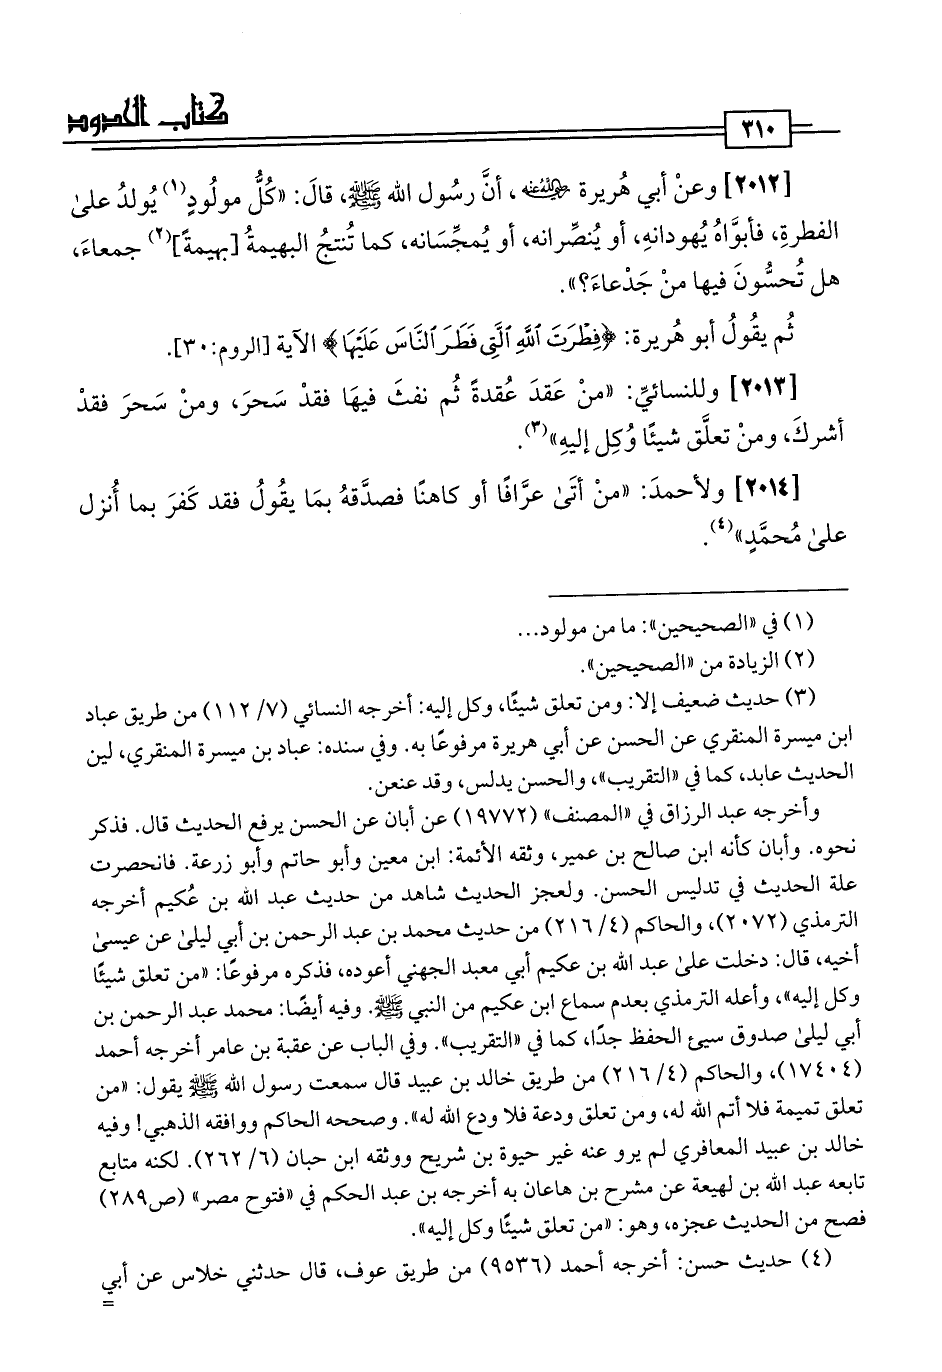 كتاب الحدود
٣١٠
[٢٠١٢] وعنْ أبي هُريرة رضي الله عنه، أنَّ رسُول الله ﷺ، قالَ: «كُلُّ مولُودٍ(١) يُولدُ علىٰ
الفطرةِ، فأبوَّاهُ يُهودانهِ، أو يُنصِّرانه، أو يُمجِّسَانه، كما تُنتجُ البهيمةُ [بهيمةً](٢) جمعاءَ،
هل تُحسُّونَ فيها منْ جَدْعاءَ؟».
ثُم يقُولُ أبو هُريرة: ﴿فِطْرَتَ ٱللَّهِ ٱلَّتِى فَطَرَ ٱلنَّاسَ عَلَيْهَا﴾ الآية [الروم:٣٠].
[٢٠١٣] وللنسائيِّ: «منْ عَقدَ عُقدةً ثُم نفثَ فيهَا فقدْ سَحرَ، ومنْ سَحرَ فقدْ
أشركَ، ومنْ تعلَّق شيئًا وُكِل إليهِ»(٣).
[٢٠١٤] ولأحمدَ: «منْ أتَىٰ عرَّافًا أو كاهنًا فصدَّقهُ بمَا يقُولُ فقد كَفرَ بما أُنزل
علىٰ مُحمَّدٍ»(٤).
(١) في «الصحيحين»: ما من مولود...
(٢) الزيادة من «الصحيحين».
(٣) حديث ضعيف إلا: ومن تعلق شيئًا، وكل إليه: أخرجه النسائي (٧/ ١١٢) من طريق عباد
ابن ميسرة المنقري عن الحسن عن أبي هريرة مرفوعًا به. وفي سنده: عباد بن ميسرة المنقري، لين
الحديث عابد، كما في «التقريب»، والحسن يدلس، وقد عنعن.
وأخرجه عبد الرزاق في «المصنف» (١٩٧٧٢) عن أبان عن الحسن يرفع الحديث قال. فذكر
نحوه. وأبان كأنه ابن صالح بن عمير، وثقه الأئمة: ابن معين وأبو حاتم وأبو زرعة. فانحصرت
علة الحديث في تدليس الحسن. ولعجز الحديث شاهد من حديث عبد الله بن عُكيم أخرجه
الترمذي (٢٠٧٢)، والحاكم (٤/ ٢١٦) من حديث محمد بن عبد الرحمن بن أبي ليلىٰ عن عيسىٰ
أخيه، قال: دخلت علىٰ عبد الله بن عكيم أبي معبد الجهني أعوده، فذكره مرفوعًا: «من تعلق شيئًا
وكل إليه»، وأعله الترمذي بعدم سماع ابن عكيم من النبي ﷺ. وفيه أيضًا: محمد عبد الرحمن بن
أبي ليلىٰ صدوق سيئ الحفظ جدًا، كما في «التقريب». وفي الباب عن عقبة بن عامر أخرجه أحمد
(١٧٤٠٤)، والحاكم (٤/ ٢١٦) من طريق خالد بن عبيد قال سمعت رسول الله ﷺ يقول: «من
تعلق تميمة فلا أتم الله له، ومن تعلق ودعة فلا ودع الله له». وصححه الحاكم ووافقه الذهبي! وفيه
خالد بن عبيد المعافري لم يرو عنه غير حيوة بن شريح ووثقه ابن حبان (٦/ ٢٦٢). لكنه متابع
تابعه عبد الله بن لهيعة عن مشرح بن هاعان به أخرجه بن عبد الحكم في «فتوح مصر» (ص٢٨٩)
فصح من الحديث عجزه، وهو: «من تعلق شيئًا وكل إليه».
(٤) حديث حسن: أخرجه أحمد (٩٥٣٦) من طريق عوف، قال حدثني خلاس عن أبي
=